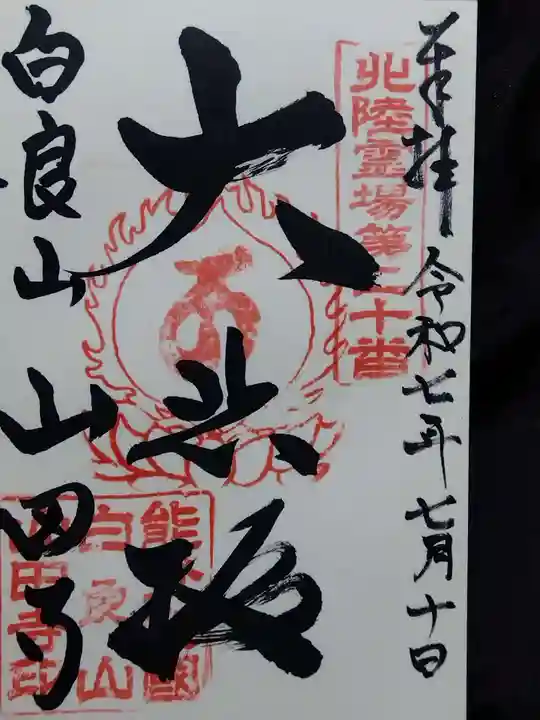 奉拝 令和七年七月十日
北陸霊場第二十番
大悲殿
白良山 山田寺
白良山
山田寺印